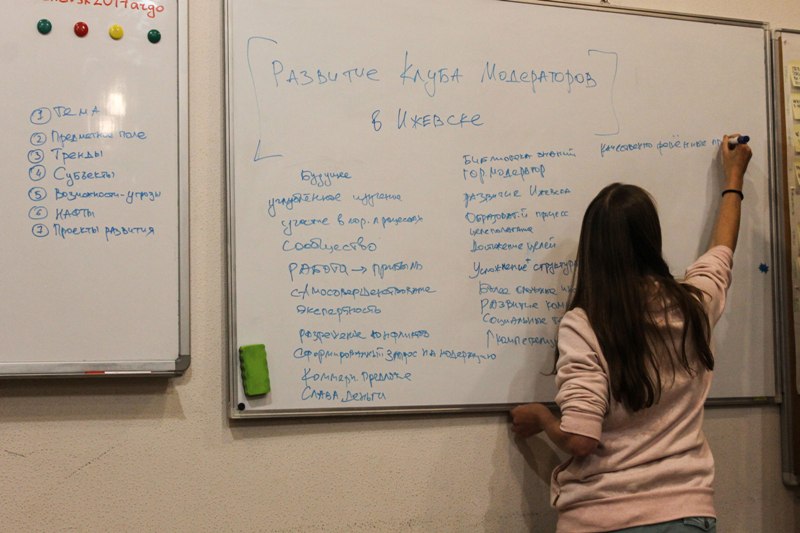 2017argo
① Тема
② Предметное поле
③ Тренды
④ Субъекты
⑤ Возможности-угрозы
⑥ НАФТы
⑦ Проекты развития
Развитие Клуба Модераторов
в Ижевске
Будущее
углублённое изучение
участие в гор. процессах
Сообщество
Работа → прибыль
Самосовершенствование
Экспертность
разрешение конфликтов
Сформированный запрос на модерацию
Коммерч. предлож
Слава, деньги
Библиотека знаний
гор модератор
развитие Ижевска
Образоват процесс
целеполагание
Достижение целей
Усложнение структуры
Более сложные
Развитие
Социальные
↑ компетенц
качественно решённые